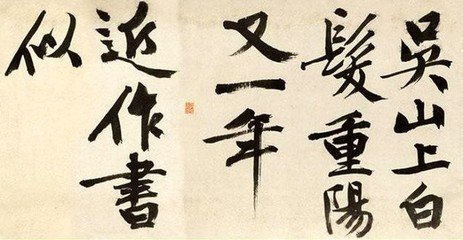 吳山上白
髮重陽
又一年
近作書
似